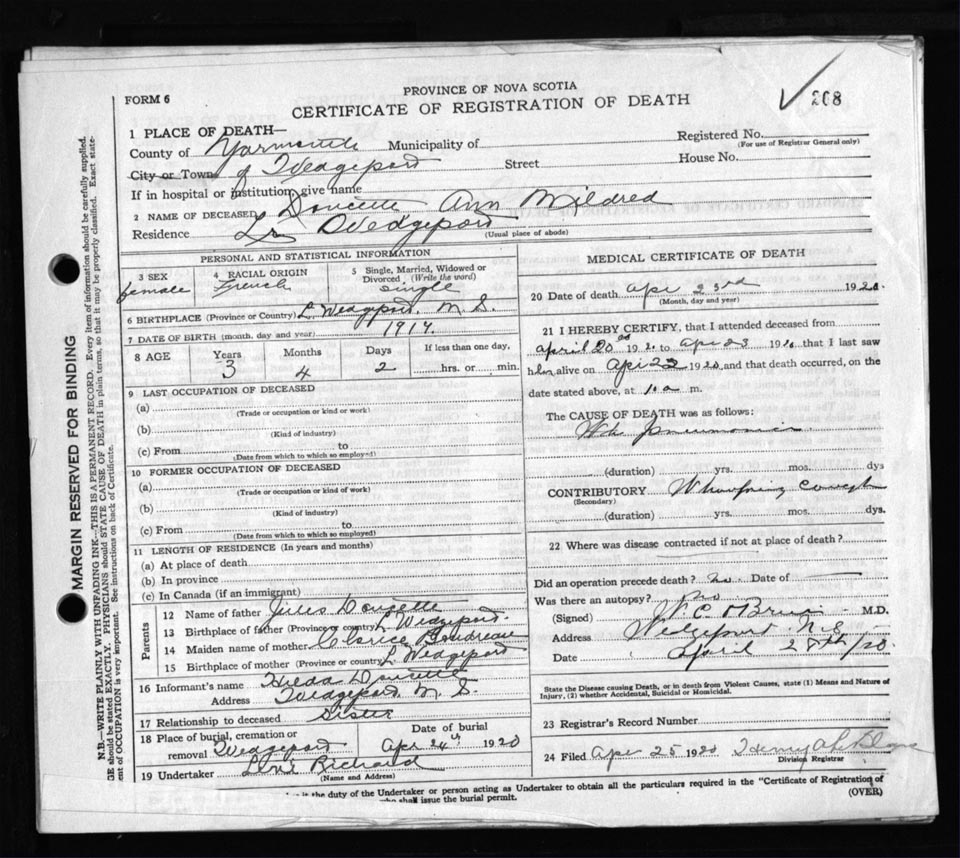 PROVINCE OF NOVA SCOTIA
FORM 6
CERTIFICATE OF REGISTRATION OF DEATH
208
1 PLACE OF DEATH—
County of Yarmouth Municipality of
Registered No.
(For use of Registrar General only)
City or Town of Wedgeport Street
House No.
If in hospital or institution, give name
2 NAME OF DECEASED Doucette Ann Mildred
Residence Lr Wedgeport
(Usual place of abode)
PERSONAL AND STATISTICAL INFORMATION
3 SEX
female
4 RACIAL ORIGIN
French
5 Single, Married, Widowed or Divorced (Write the word)
Single
6 BIRTHPLACE (Province or Country) L. Wedgeport. N. S.
7 DATE OF BIRTH (month, day and year) 1917.
8 AGE Years Months Days If less than one day,
3 4 2 hrs. or min.
9 LAST OCCUPATION OF DECEASED
(a)
(Trade or occupation or kind or work)
(b)
(Kind of industry)
(c) From to
(Date from which to which so employed)
10 FORMER OCCUPATION OF DECEASED
(a)
(Trade or occupation or kind of work)
(b)
(Kind of industry)
(c) From to
(Date from which to which so employed)
11 LENGTH OF RESIDENCE (In years and months)
(a) At place of death
(b) In province
(c) In Canada (if an immigrant)
Parents
12 Name of father Jules Doucette
13 Birthplace of father (Province or country) L Wedgeport.
14 Maiden name of mother Clarice Boudreau
15 Birthplace of mother (Province or country) L Wedgeport
16 Informant's name Hilda Doucette
Address Wedgeport N. S.
17 Relationship to deceased Sister
18 Place of burial, cremation or removal Wedgeport
Date of burial
Apr 24th 1920
19 Undertaker Richard
(Name and Address)
MEDICAL CERTIFICATE OF DEATH
20 Date of death apr 23rd 1920.
(Month, day and year)
21 I HEREBY CERTIFY, that I attended deceased from
april 20 1920 to apr 23 1920 that I last saw
her alive on apr 22 1920 and that death occurred, on the
date stated above, at 10 a m.
The CAUSE OF DEATH was as follows:
pneumonia
(duration) yrs. mos. dys
CONTRIBUTORY Whooping Cough
(Secondary)
(duration) yrs. mos. dys.
22 Where was disease contracted if not at place of death?
Did an operation precede death? no. Date of —
Was there an autopsy? no
(Signed) M.D.
Address Wedgeport N.S
Date April 28th/20.
State the Disease causing Death, or in death from Violent Causes, state (1) Means and Nature of
Injury, (2) whether Accidental, Suicidal or Homicidal.
23 Registrar's Record Number
24 Filed Apr 25 1920 Henry
Division Registrar
is the duty of the Undertaker or person acting as Undertaker to obtain all the particulars required in the "Certificate of Registration of
shall issue the burial permit.
(OVER)
MARGIN RESERVED FOR BINDING
N.B.—WRITE PLAINLY WITH UNFADING INK—THIS IS A PERMANENT RECORD. Every item of information should be carefully supplied.
GE should be stated EXACTLY. PHYSICIANS should STATE CAUSE OF DEATH in plain terms, so that it may be properly classified. Exact state-
ent of OCCUPATION is very important. See instructions on back of Certificate.